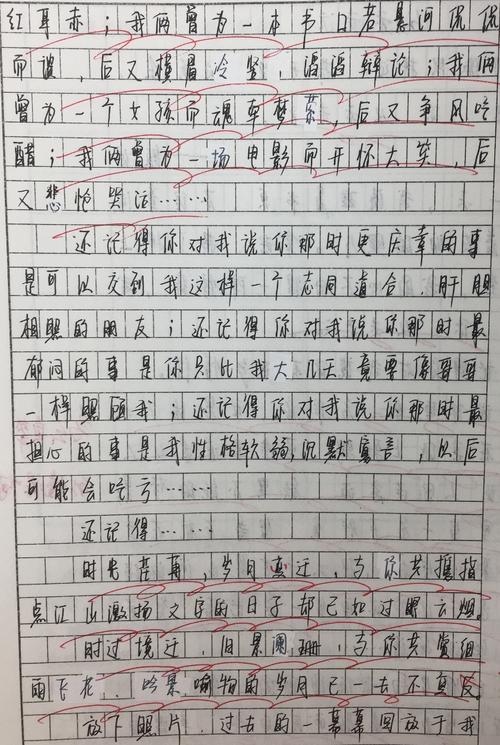 红耳赤；我俩曾为一本书口若悬河侃侃
而谈，后又横眉冷竖，滔滔辩论；我俩
曾为一个女孩而魂牵梦萦，后又争风吃
醋；我俩曾为一场电影而开怀大笑，后
又悲恸哭泣……
还记得你对我说你那时更庆幸的事
是可以交到我这样一个志同道合，肝胆
相照的朋友；还记得你对我说你那时最
郁闷的事是你只比我大几天竟要像哥哥
一样照顾我；还记得你对我说你那时最
担心的事是我性格软弱，沉默寡言，以后
可能会吃亏……
还记得……
时光荏苒，岁月变迁，与你共携指
点江山激扬文字的日子却已如过眼云烟。
时过境迁，旧景阑珊，与你共赏细
雨飞花，吟景喻物的岁月已一去不复返。
放下照片，过去的一幕幕回放于我